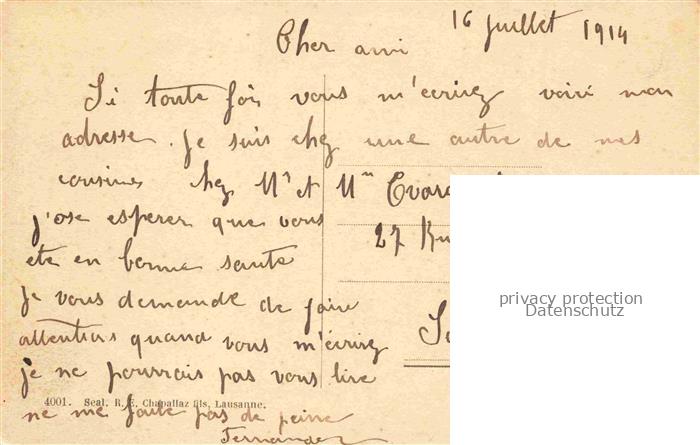 16 juillet 1914
Cher ami
Si toute fois vous m'ecrivez voici mon
adresse. Je suis chez une autre de mes
cousines chez Mr et Mm
27
j'ose esperer que vous
ete en bonne sante
je vous demande de faire
attentions quand vous m'ecrirez
je ne pourrais pas vous lire
ne me faite pas de peine
Fernande
4001. Seal. R. E. Chapallaz fils, Lausanne.
privacy protection
Datenschutz